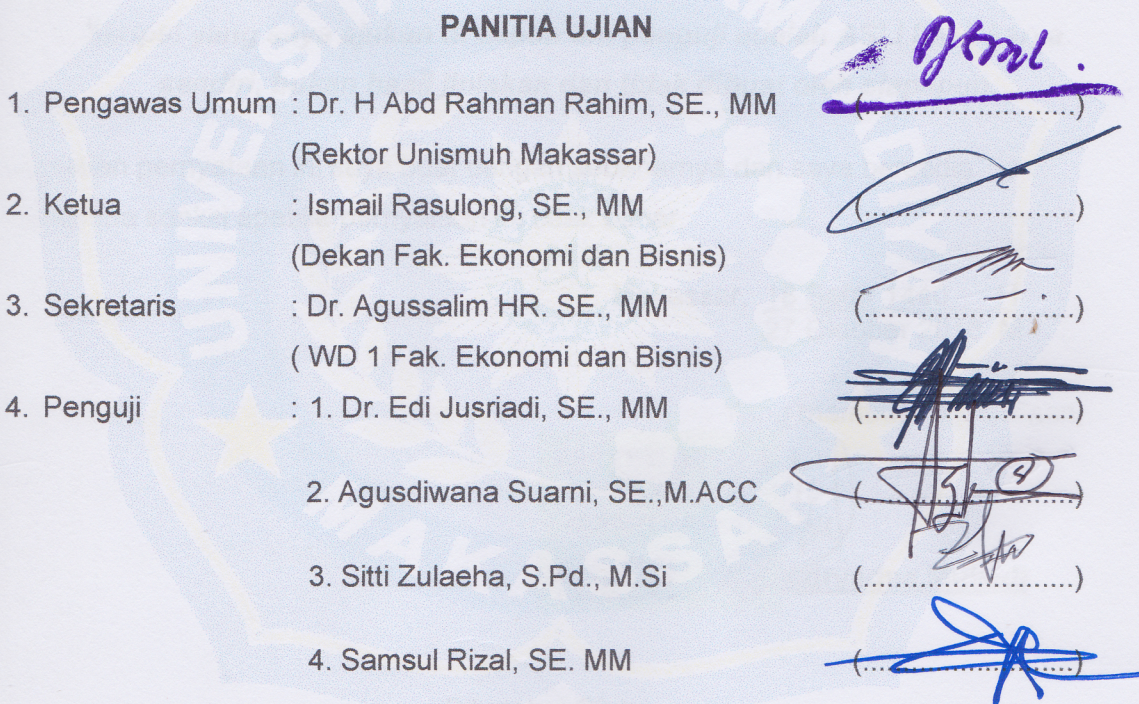 PANITIA UJIAN
1. Pengawas Umum : Dr. H Abd Rahman Rahim, SE., MM (..........................)
(Rektor Unismuh Makassar)
2. Ketua : Ismail Rasulong, SE., MM (..........................)
(Dekan Fak. Ekonomi dan Bisnis)
3. Sekretaris : Dr. Agussalim HR. SE., MM (..........................)
( WD 1 Fak. Ekonomi dan Bisnis)
4. Penguji : 1. Dr. Edi Jusriadi, SE., MM (..........................)
2. Agusdiwana Suarni, SE.,M.ACC (..........................)
3. Sitti Zulaeha, S.Pd., M.Si (..........................)
4. Samsul Rizal, SE. MM (..........................)
MAKASSAR